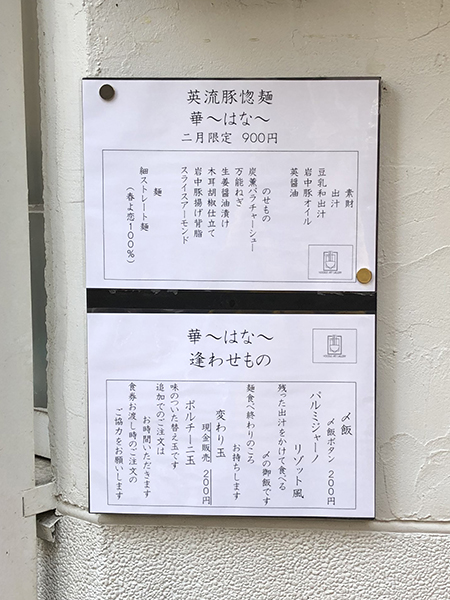 英流豚惚麺
華〜はな〜
二月限定 900円
素財
出汁
豆乳和出汁
岩中豚オイル
英醤油
のせもの
炭薫バラチャーシュー
万能ねぎ
生姜醤油漬け
木耳胡椒仕立て
岩中豚揚げ背脂
スライスアーモンド
麺
細ストレート麺
（春よ恋100%）
華〜はな〜
逢わせもの
〆飯
〆飯ボタン 200円
パルミジャーノ
リゾット風
残った出汁をかけて食べる
〆の御飯です
麺食、終わりのころ
お持ちします
変わり玉
現金販売 200円
ポルチーニ玉
味のついた替え玉です
追加でのご注文は
お時間いただきます
食券お渡し時のご注文の
ご協力をお願いします